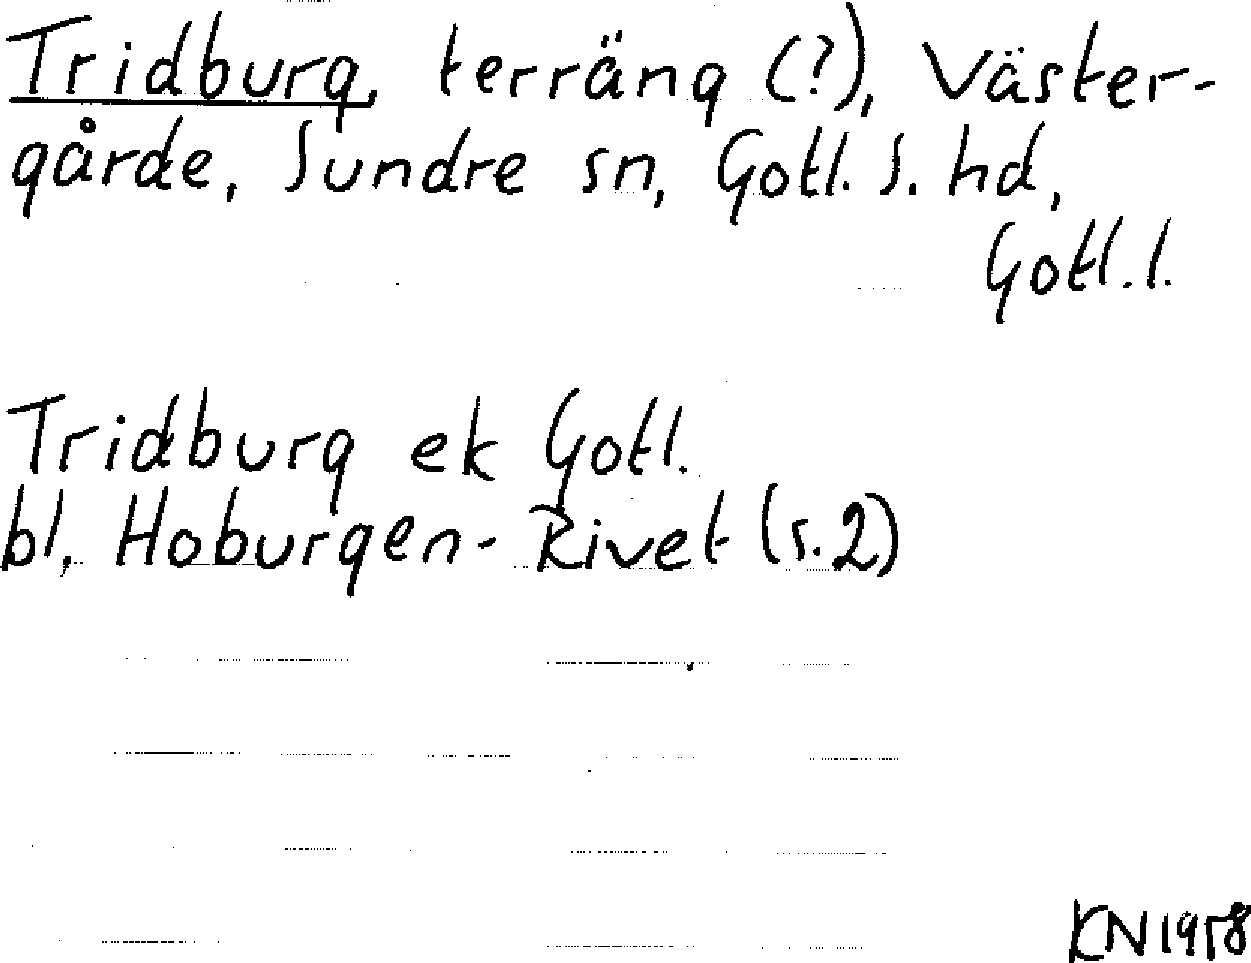 Tridburg, terräng (?), Väster-
gårde, Sundre sn, Gotl. S. hd,
Gotl. l.
Tridburg ek Gotl.
bl. Hoburgen-Rivet (s.2)
KN 1958